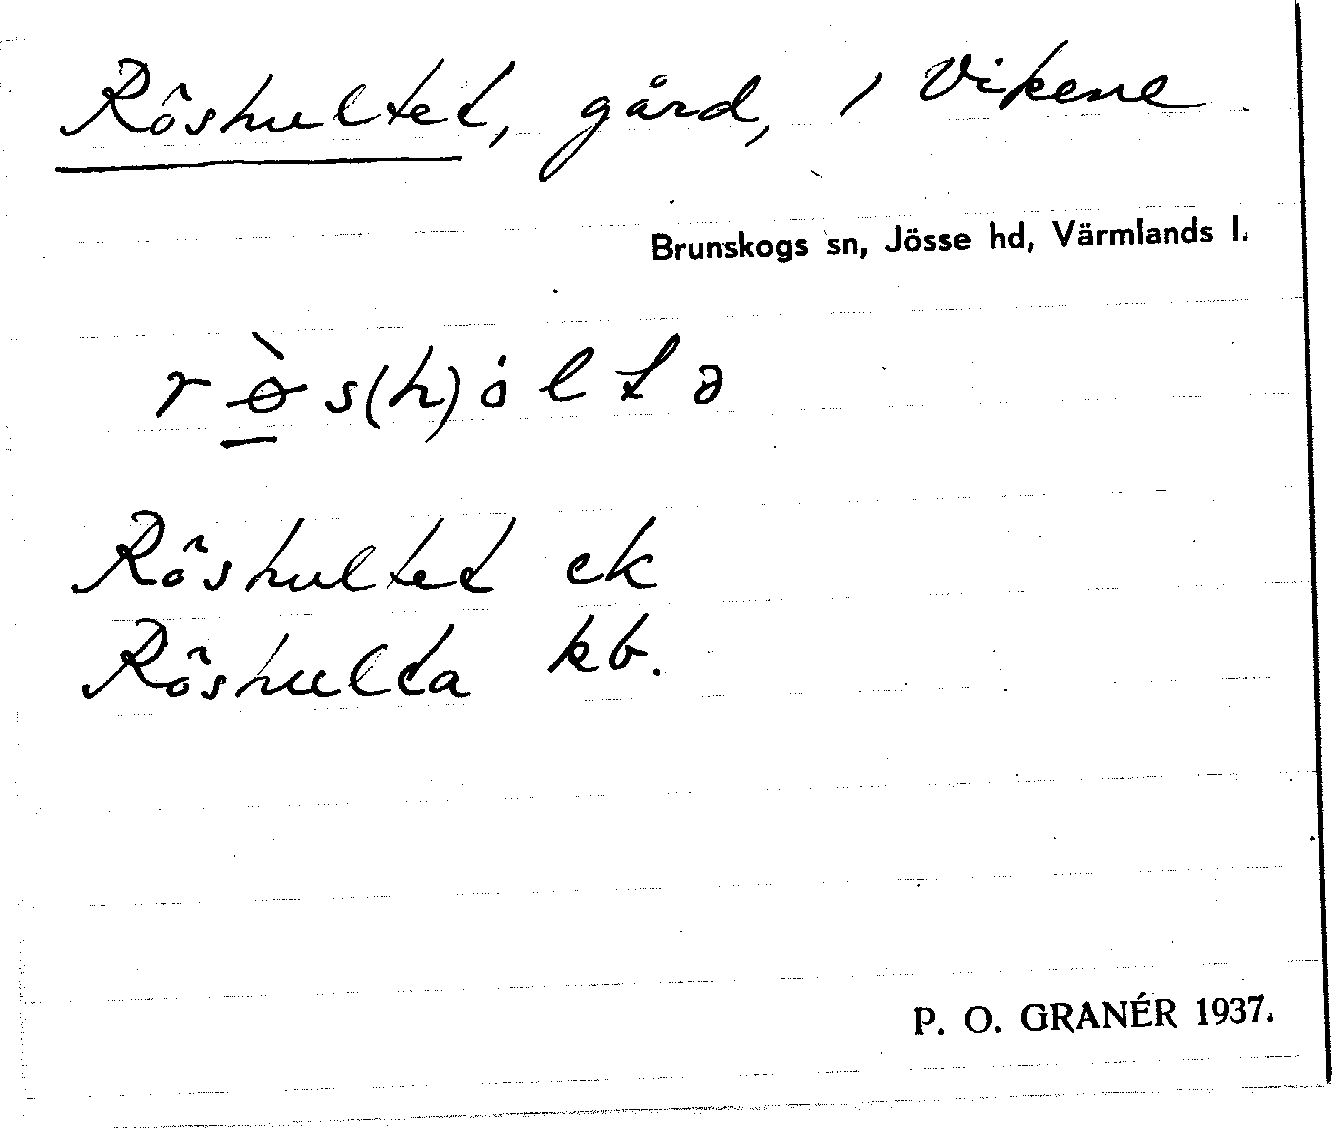 Röshultet, gård, / Vikene
Brunskogs sn, Jösse hd, Värmlands l.
r ɵ̀ s(h) ȯ l t ə
Röshultet ek
Röshulta kb.
P. O. GRANÉR 1937.